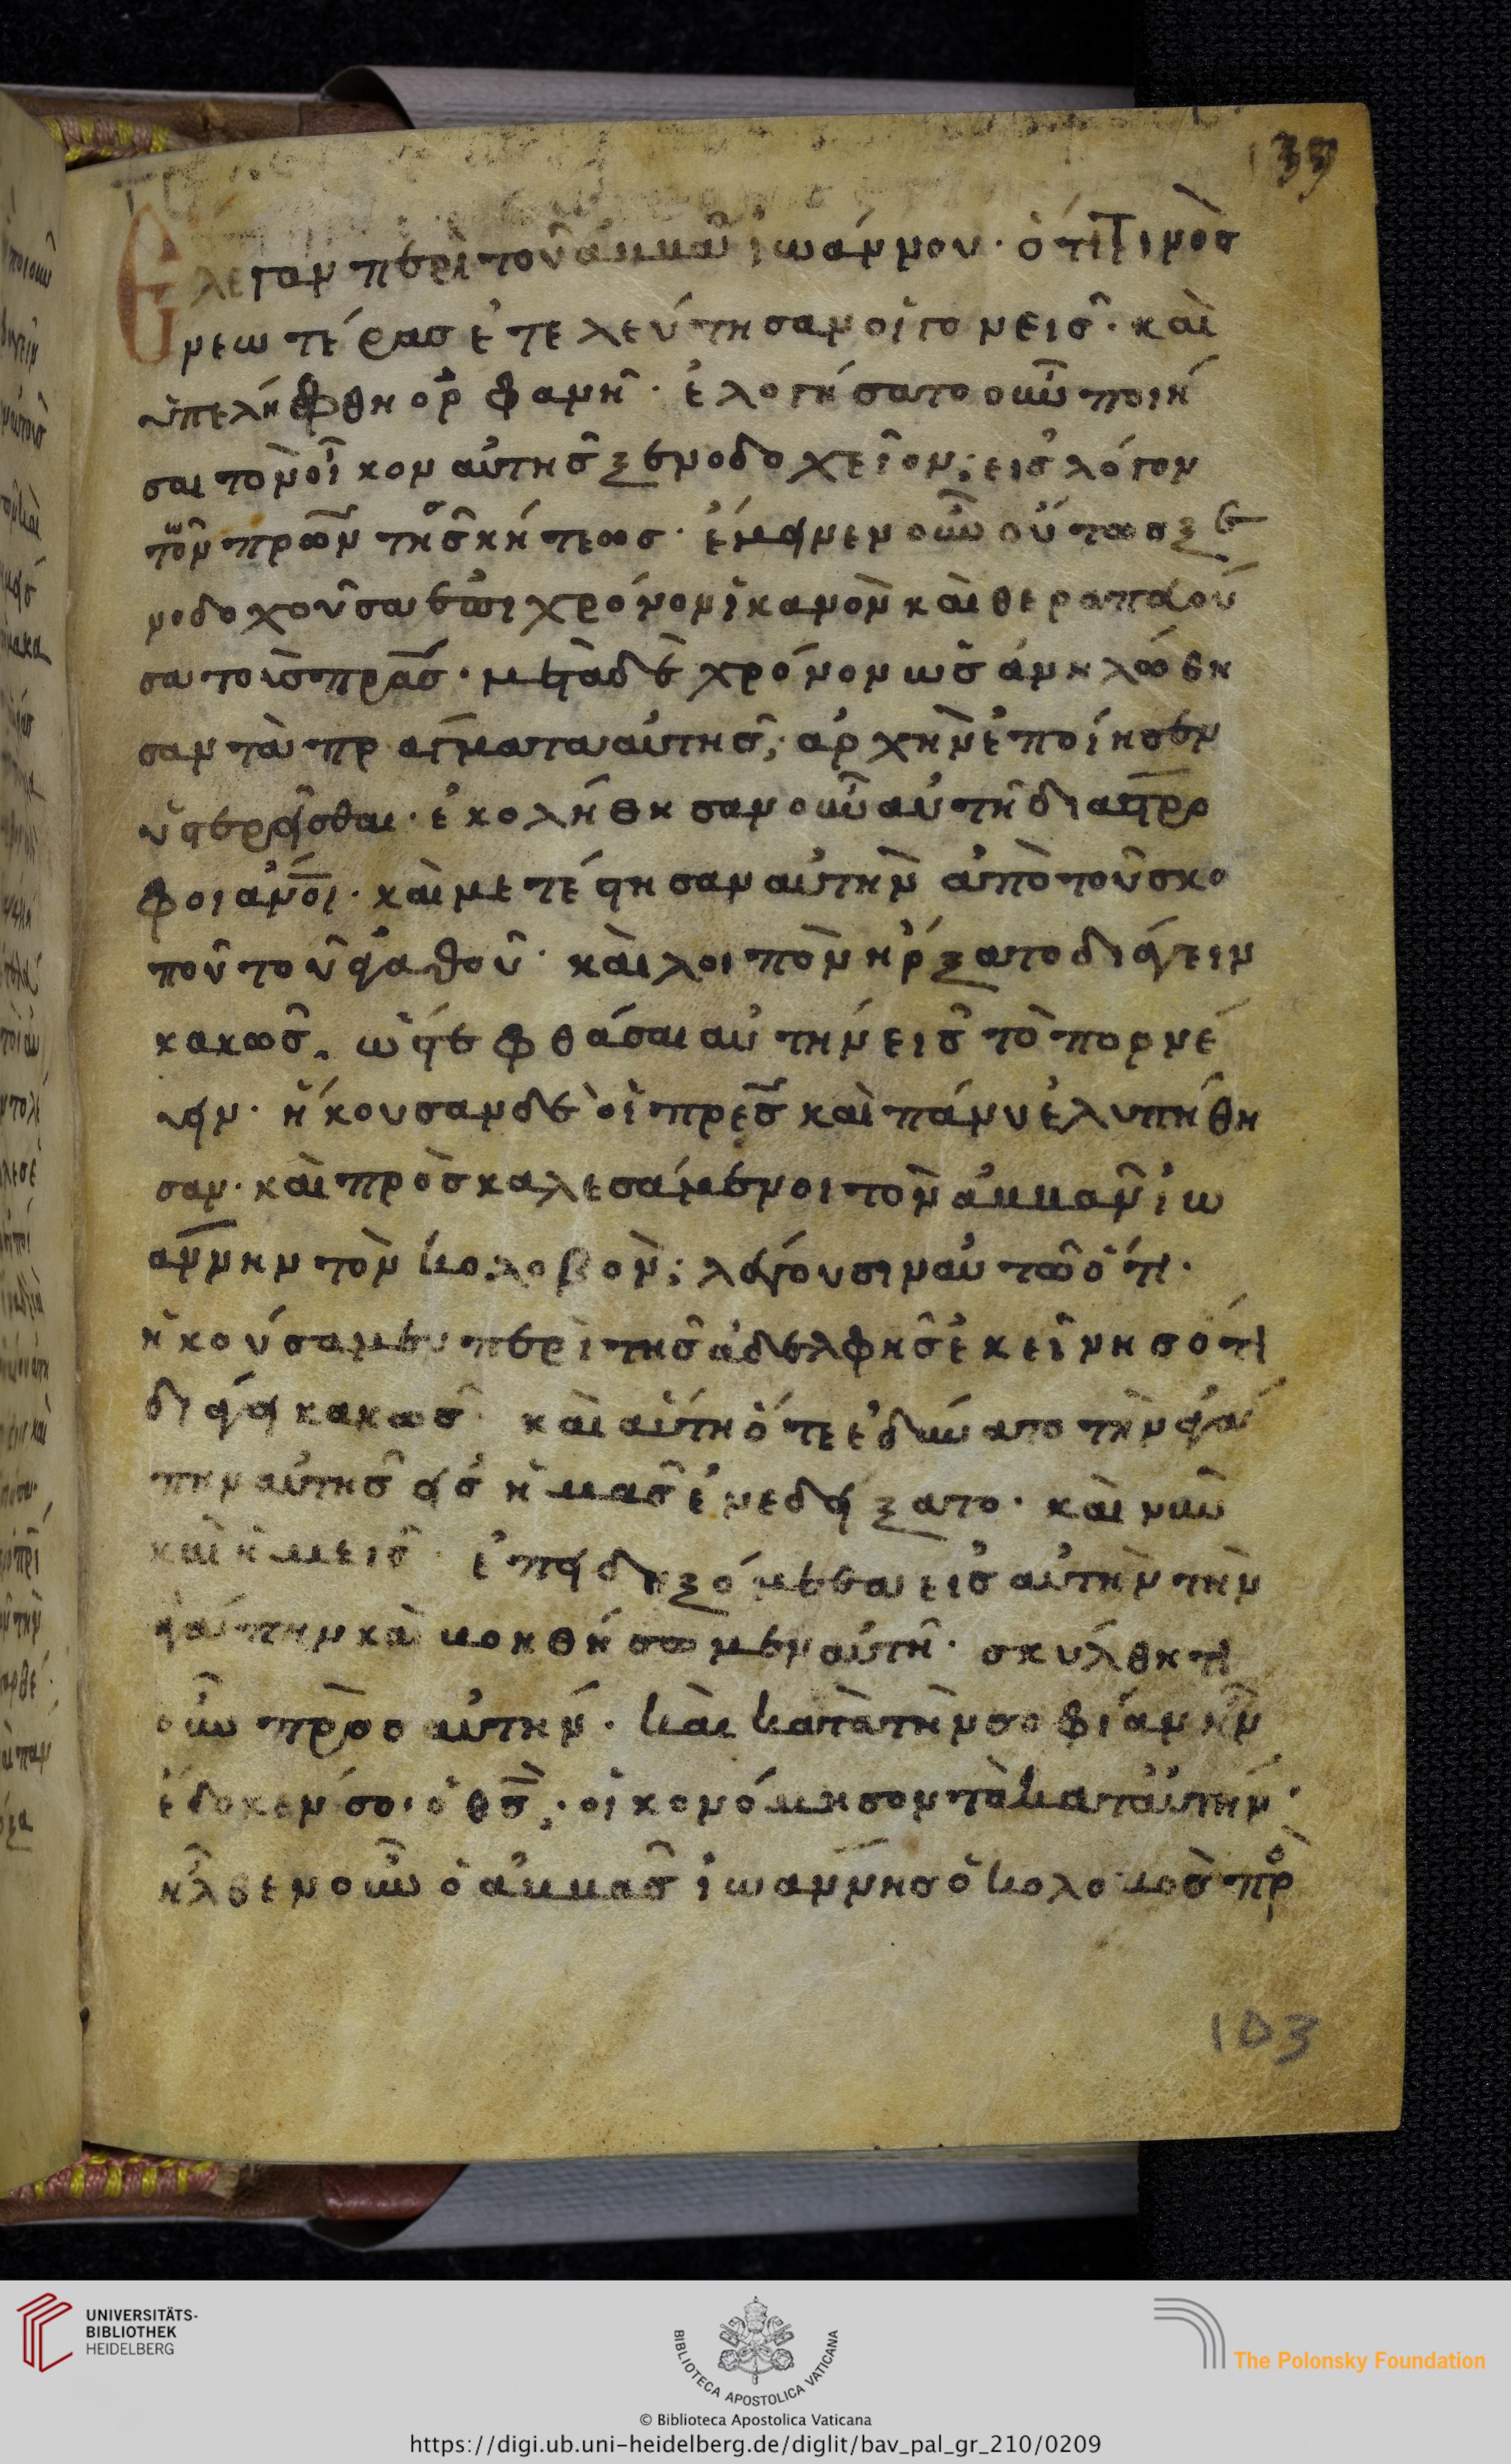 39
Ἔλεγαν περὶ τοῦ ἀμμᾶ ἰωάννου· ὅτι τινὸς
νεωτέρας ἐτελεύτησαν οἱ γονεῖς· καὶ
ὑπελήφθη ὀρφανῆ· ἐλογήσατο οὖν ποιή
σαι τὸν οἶκον αὐτῆς ξενοδοχεῖον· εἰς λόγον
τῶν πρῶν τῆς σκήτεως· ἔμεινεν οὖν οὕτως ξε
νοδοχοῦσα ἐπι χρόνον ἱκανὸν καὶ θεραπεύου
σα τοὶς πρᾶσ· μετὰ δὲ χρόνον ὡς ἀνηλώθη
σαν τὰ πράγματα αὐτῆς· ἀρχὴν ἐποίησεν
ὑστερεῖσθαι· ἐκολήθησαν οὖν αὐτῆ διαστρο
φοι ἄνοι· καὶ μετέστησαν αὐτὴν ἀπὸ τοῦ σκο
ποῦ τοῦ ἀγαθοῦ· καὶ λοιπὸν ἤρξατο διάγειν
κακῶς. ὥστε φθάσαι αὐτήν εἰς τὸ πορνέ
υειν· ἤκουσαν δὲ οἱ πρες καὶ πάνυ ἐλυπήθη
σαν· καὶ πρὸσκαλεσάμενοι τὸν ἀμμᾶν ἰω
άννην τὸν κολοβὸν· λέγουσιν αὐτῶ ὅτι·
ἠκούσαμεν περὶ τῆς ἀδελφῆς ἐκείνησ ὅτι
διάγει κακῶς· καὶ αὕτη ὅτε ἐδύνατο τὴν ἀγά
πην αὐτῆς εἰς ἡμᾶς ἐνεδείξατο· καὶ νῦν
καὶ ἡμεῖς· ἐπιδειξόμεθα εἰς αὐτὴν τὴν
ἀγάπην καὶ βοηθήσωμεν αὐτῆ· σκύλθητι
οὖν πρὸσ αὐτήν· καὶ κατὰ τὴν σοφίαν ἣν
ἔδοκέν σοι ὁ θς· οἰκονόμησον τὰ κατ' αὐτήν·
ἦλθεν οὖν ὁ ἀμμᾶς ἰωάννησ ὁ κολοβὸς πρ
103
UNIVERSITÄTS-
BIBLIOTHEK
HEIDELBERG
BIBLIOTECA APOSTOLICA VATICANA
The Polonsky Foundation
© Biblioteca Apostolica Vaticana
https://digi.ub.uni-heidelberg.de/diglit/bav_pal_gr_210/0209